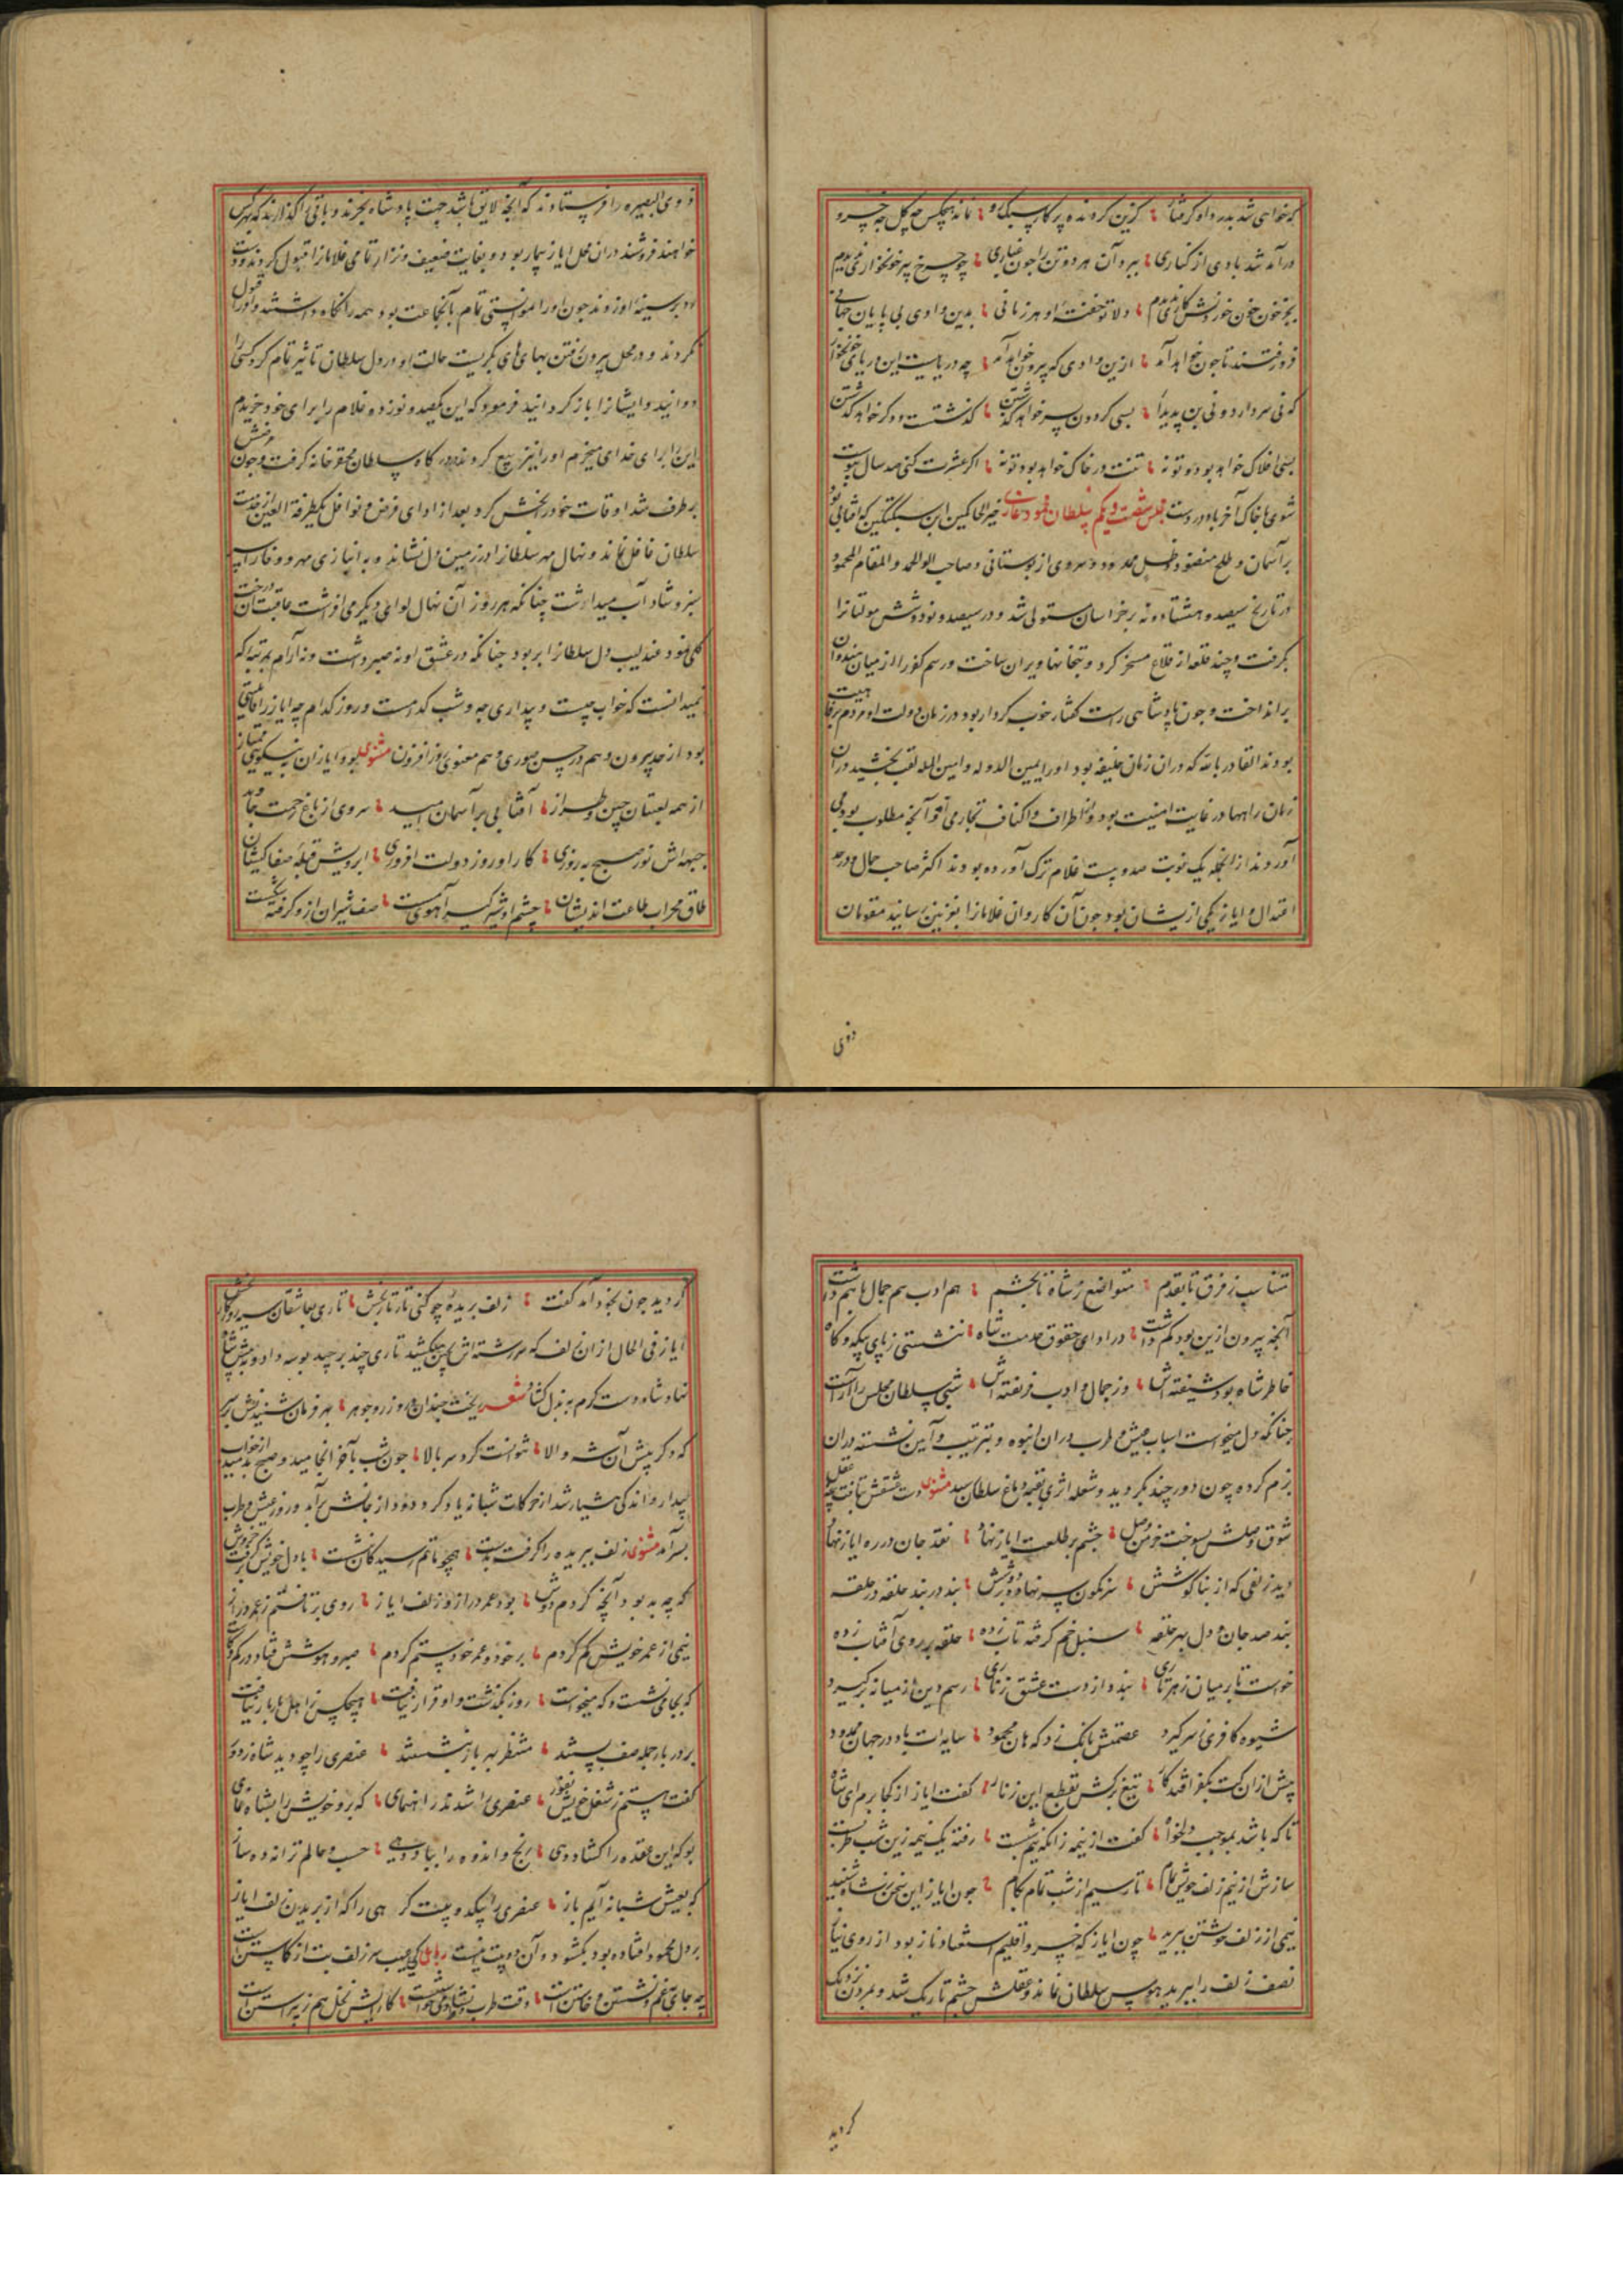 درآمد شد بادی از کناری ببرد آن هر دو تن را چون غباری چو چرخ پیر خونخواری ندیدم
فرو رفتند تا چون خواهد آمد ازین وادی که بیرون خواهد آمد چه دریاییست این دریای خونخوار
که نی سر دارد و نی بن پدیدار بسی گردون بسر خواهد گذشتن گذشتست و دگر خواهد گذشتن
بسی افلاک خواهد بود و تو نه تنت در خاک خواهد بود و تو نه اگر عشرت کنی صد سال پیوست
شوی با خاک آخر باد در دست مجلس شصت و یکم سلطان محمود غازی خیر الحاکمین ابن سبکتکین که آفتابی بود
بر آسمان و طلح منضود و ظل ممدود و سروی از بوستانی و صاحب لوا الحمد والمقام المحمود
در تاریخ سیصد و هشتاد و نه بر خراسان مستولی شد و در سیصد و نود و شش مولتانرا
بگرفت و چند قلعه از قلاع مسخر کرد و بتخانها ویران ساخت و رسم کفر را از میان هندوان
برانداخت و چون پادشاهی راست گفتار خوب کردار بود در زمان دولت او مردم برفاهیت
بودند القادر بالله که در آن زمان خلیفه بود او را یمین الدوله و امین المله لقب بخشید در آن
زمان راهها در غایت امنیت بود و از اطراف و اکناف تجار می آمد و آنچه مطلوب بود می
آوردند از انجمله یک نوبت صد و بیست غلام ترک آورده بودند اکثر صاحب جمال و در حد
اعتدال و ایاز یکی از یشان بود چون آن کاروان غلامانرا بغزنین رسانید مقومان
ذوی
ذوی البصیره را فرستادند که آنچه لایق باشد جهت پادشاه بخرند و باقی را گذارند که بهر کس
خواهند فروشند در ان محل ایاز بیمار بود و بغایت ضعیف و نزار تمامی غلامانرا قبول کردند و دست
رد بر سینه او زدند چون او را موانستی تمام بآنجماعت بود همه را نگاه داشتند و او را قبول
نکردند و در محل بیرون رفتن بهای های بگریست حالت او در دل سلطان تاثیر تمام کرد کسی را
دوانید و ایشانرا باز گردانید فرمود که این یکصد و نوزده غلام را برای خود خریدم
این را برای خدای میخرم او را نیز بیع کردند در کاه سلطان محقر خانه گرفت و چون مرضش
بر طرف شد اوقات خود را بخش کرد بعد از ادای فرض و نوافل یکطرفة العین از خدمت
سلطان غافل نماند و نهال مهر سلطانرا در زمین دل نشاند و به انبازی مهر و وفا آن را
سبز و شاداب میداشت چنانکه هر روز آن نهال لوای دیگر می افراشت عاقبت آن درخت
گلی نمود عندلیب دل سلطانرا بربود چنانکه در عشق او نه صبر داشت و نه آرام بمرتبه که
نمیدانست که خواب چیست و بیداری چه و شب کدامست و روز کدام چه ایاز را قابلیتی
بود از حد بیرون و هم در حسن صوری و هم معنوی روز افزون مثنوی بود ایاز آن به نیکویی ممتاز
از همه لعبتان چین و طراز آفتابی بر آسمان امید سروی از باغ رحمت جاوید
جبهه اش نور صبح به روزی کار او روز دولت افروزی ابرویش قبله صفا کیشان
طاق محراب طاعت اندیشان چشم او شیرگیر آهوی مست صف شیران ازو گرفته شکست
متناسب ز فرق تا بقدم متواضع ز شاه تا بحشم هم ادب هم جمال با هم داشت
آنچه بیرون ازین بود کم داشت در ادای حقوق خدمت شاه ننشستی ز پای بیگه و گاه
خاطر شاه بود شیفته اش وز جمال و ادب فریفته اش شبی سلطان مجلس را آراست
چنانکه دل میخواست اسباب عیش و طرب در ان انبوه و بترتیب و آیین نشسته در ان
بزم کرده چون دور چند بگردید و شعله اثری بقبه دماغ سلطان رسید مثنوی دست عشقش بتافت پنجه عقل
شوق وصلش بسوخت خرمن چشم بر طلعت ایاز نهاد نقد جان در ره ایاز نهاد
دید زلفی که از بناگوشش سرنگون سر نهاده بر دوشش بند در بند حلقه در حلقه
بند صد جان و دل بهر حلقه سنبل خم گرفته تاب زده حلقه بر روی آفتاب زده
خواست تا بر میان ز هر تاری بندد از دست عشق زناری رسم دین از میانه برگیرد
شیوه کافری ز سر گیرد عصمتش بانگ زد که هان محمود سایه ات باد در جهان ممدود
پیش از ان کت بکفر افتد کار تیغ برکش بقطع این زنار گفت ایاز از کجا برم ای شاه
تا که باشد بموجب دلخواه گفت از نیمه زانکه نیم شبست رفته یک نیمه زین شب طربست
سازش از نیم زلف خویش تمام تا رسیم از شب تمام بکام چون ایاز این سخن ز شاه شنید
نیمی از زلف خویشتن ببرید چون ایاز که خسرو اقلیم استغنا و ناز بود از روی نیاز
نصف زلف را ببرید هوس سلطان نماند و عقلش چشم تاریک شد و بمردن نزدیک
گردید
گردید چون بخود آمد گفت زلف ببریده چو کنی تار تار بخش تاری بعاشقان سیه روزگار بخش
ایاز فی الحال از ان زلف که سر رشته اش بچین میکشید تاری چند بر چید بوسه داد و پیش شاه
نهاد شاه دست کرم به بذل گشاد شعر ریخت چندان در و زر و جوهر بهر فرمان شنیدنش بر سر
که دگر پیش آن شه والا نتوانست کرد سر بالا چون شب بآخر انجامید و صبح بدمید از خواب
بیدار و اندکی هشیار شد از حرکات شبانه یاد کرد و دود از جانش برآمد و روز عیش و طرب
بسر آمد مثنوی زلف ببریده را گرفت بدست همچو ماتم رسیدگان بنشست با دل خویش در گرفت خروش
که چه بد بود آنچه کردم دوش بود عمر دراز زلف ایاز روی برتافتم ز عمر دراز
نیمی از عمر خویش کم کردم بر خود و عمر خود ستم کردم صبر و هوشش فتاد در کم و کاست
که بجا می نشست و گه میخاست روز بگذشت و او قرار نیافت هیچکس ز اهل بار بار نیافت
بر در بار جمله صف بستند منتظر بهر بار بنشستند عنصری را چو دید شاه ز دور
گفت هستم ز شغل خویش نفور عنصری را شدند راهنمای که برو خویش را بشاه نمای
بو که این عقده را گشاد دهی رنج و اندوه را بباد دهی حسب و حالم ترانه ده ساز
که بعیش شبانه آیم باز عنصری را بیک دو بیت گرهی را که از بریدن زلف ایاز
بر دل محمود افتاده بود بگشود و آن دو بیت اینست رباعی کی عیب سر زلف بت از کاستن است
چه جای بغم نشستن و خاستن است وقت طرب و نشاط و می خواستنست کارایش نخل هم ز پیراستن است